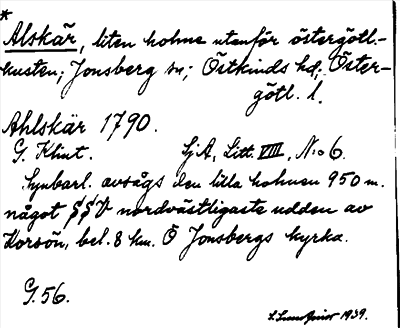 *
Alskär, liten holme utanför östergötl.-
kusten; Jonsberg sn; Östkinds hd; Öster-
götl. l.
Ahlskär 1790.
G. Klint. SjA, Litt. VIII, No 6.
Synbarl. avsågs den lilla holmen 950 m.
något SSV nordvästligaste udden av
Korsön, bel. 8 km. Ö Jonsbergs kyrka.
G. 56.
1939.